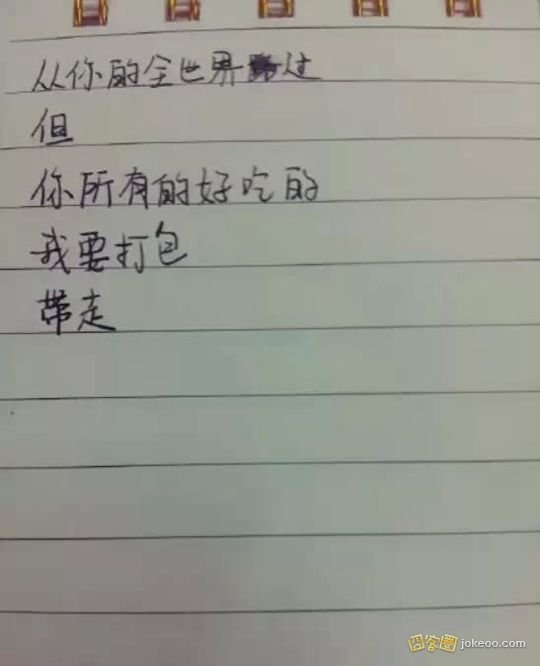 从你的全世界路过
但
你所有的好吃的
我要打包
带走
囧答圈 jokeoo.com